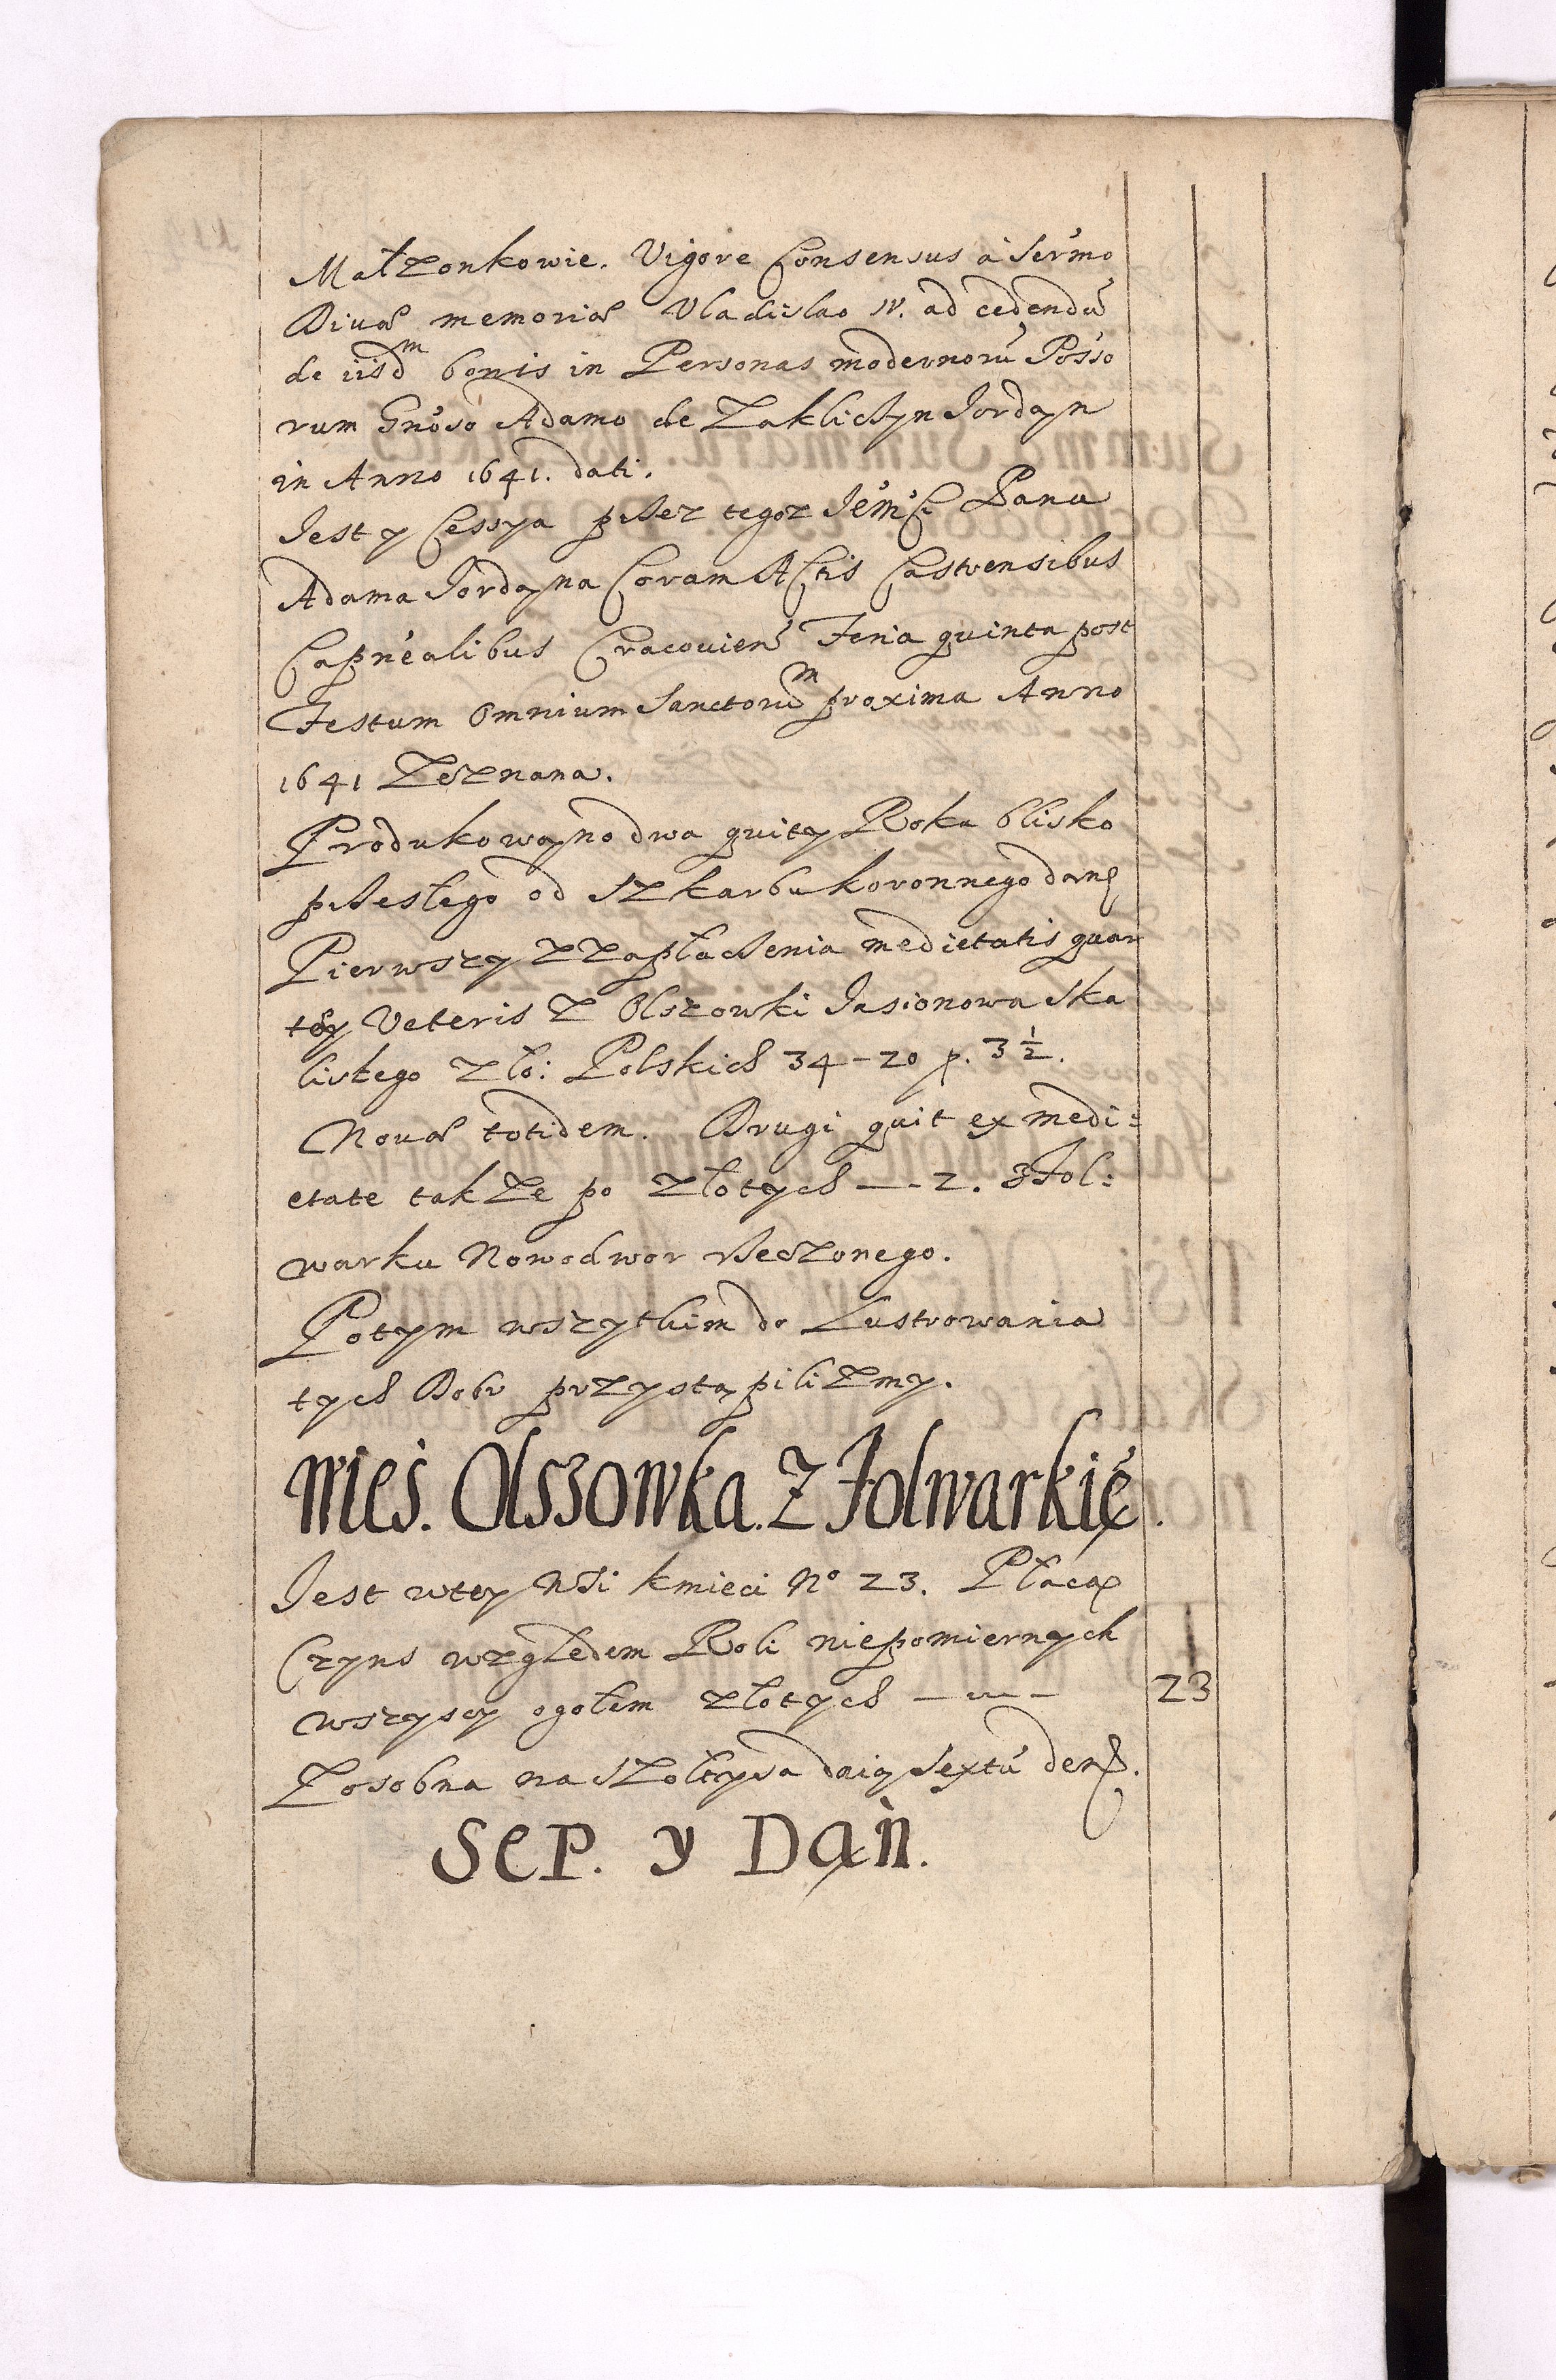 Małzonkowie. Vigore Consensus à Serm̃o
Diuæ memoriæ Vladislao IV. ad cedendũ
de iisdm bonis in Personas modernorũ Posso
rum Gnoso Adamo de Zakliczyn Jordan
in Anno 1641. dati.
Jest y Cessya przez tegoz Jem̃ci Pana
Adama Jordana Coram Actis Castrensibus
Capnealibus Cracouien Feria quinta post
Festum Omnium Sanctorum proxima Anno
1641 Zeznana.
Produkowano dwa quity Roku blisko
przeszłego od Szkarbu koronnego dane
Pierwszy z zapłaczenia medietatis quar
tæ Veteris z Olszowki Jasionowa Ska
listego zło: Polskich 34-20 p. 3½.
Nouæ totidem. Drugi quit ex medi:
etate takze po złotych —- 2. z Fol:
warku Nowodwor rzeczonego.
Potym wszytkim do Lustrowania
tych Dobr przystąpilizmy.
Wieś. Olszowka. Z Folwarkiẽ.
Jest wtey Wsi kmieci No 23. Płacą
Czyns względem Roli niepomiernych
wszyscy ogołem złotych —~— 23
Zosobna na Szołtysa daią Sextũ den.
Sep. y Dań.